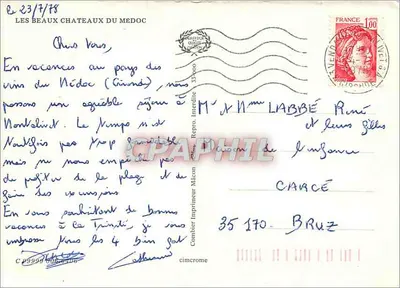 le 23/7/78
LES BEAUX CHATEAUX DU MEDOC
Chers Vous,
En vacances au pays des
vins du Médoc (Gironde), nous
passons un agréable séjour à
Montalivet. Le temps n'est
toutefois pas trop favorable
mais ne nous empêche pas
de profiter de la plage et de
faire des excursions
En vous souhaitant de bonnes
vacances à la Trinité, je vous
embrasse tous les 4 bien fort
Catherine
C 99999 006 0106
cimcrome
Combier Imprimeur Mâcon
Repro. Interdite
FRANCE
1,00
Mr et Mme LABBÉ René
et leurs filles
Maison de l'enfance
CARCÉ
35 170. BRUZ
CPAPHIL